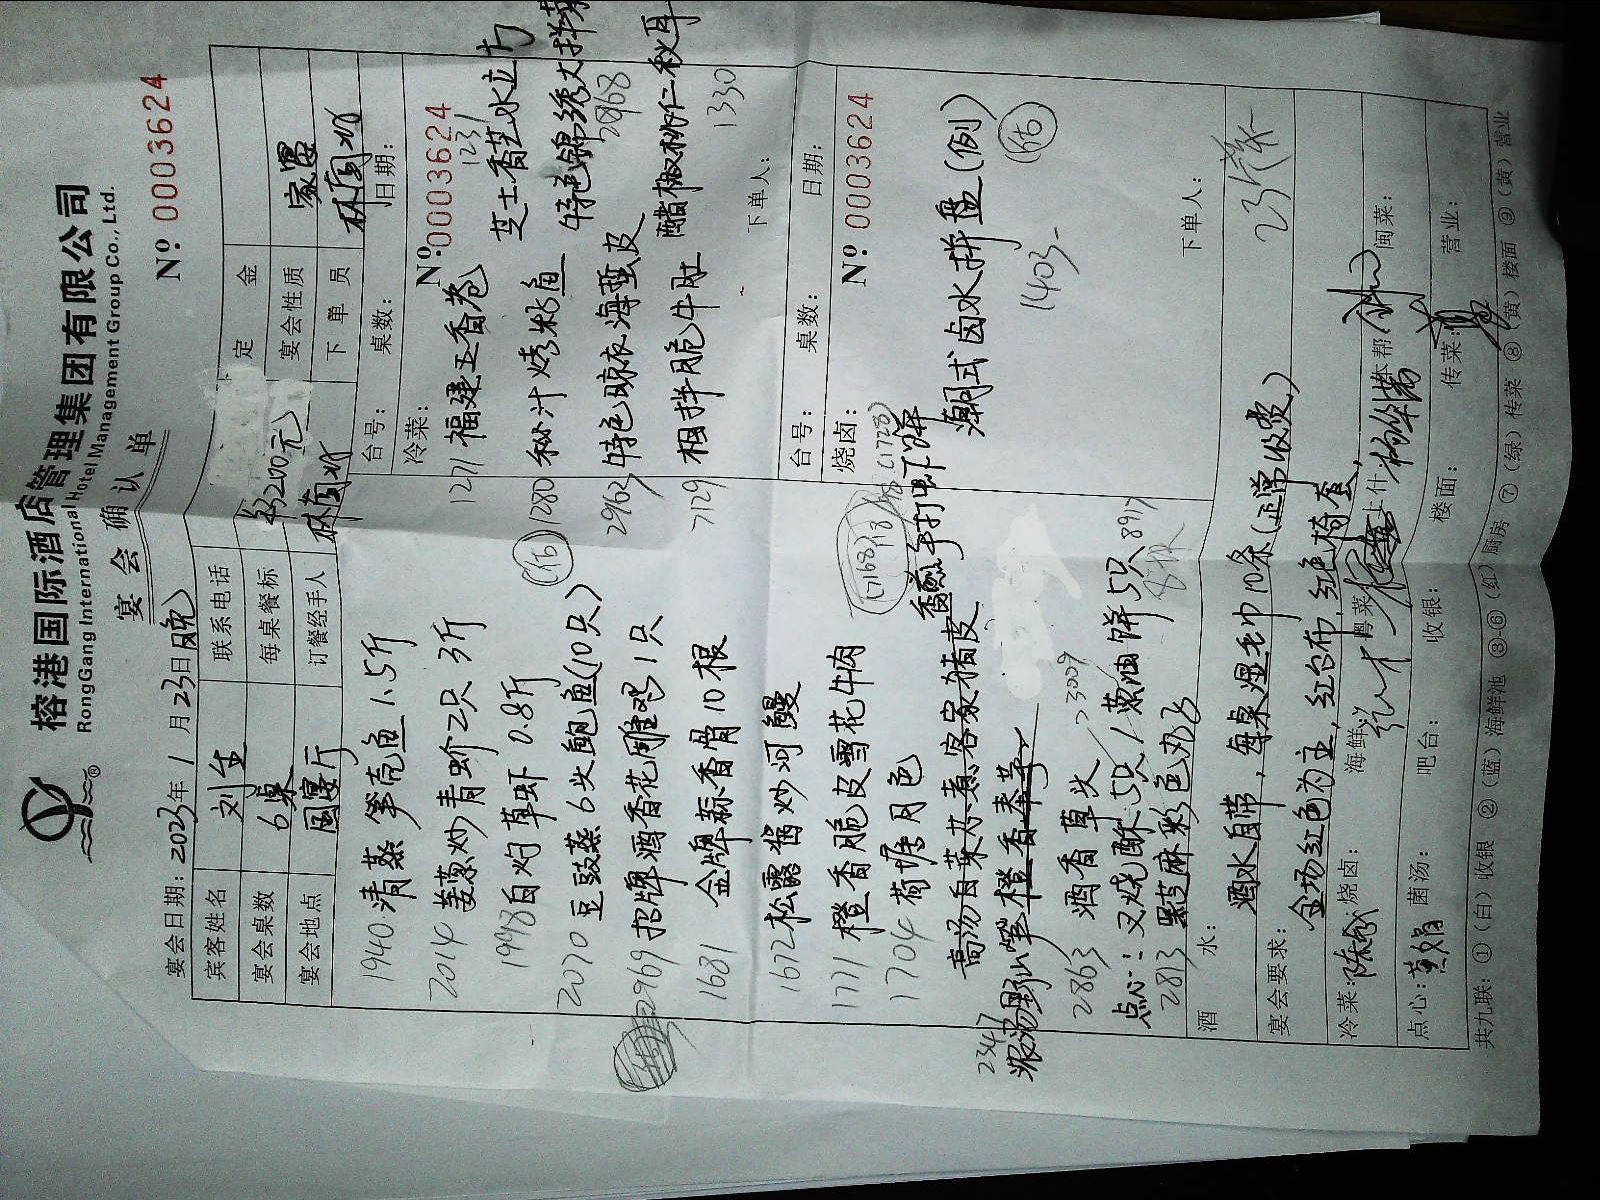 榕港国际酒店管理集团有限公司
RongGang International Hotel Management Group Co., Ltd.
宴会确认单
宴会日期: 2023年1月23日晚 Nº 0003624
宾客姓名 刘生 联系电话 定金
宴会桌数 6桌 每桌餐标 3200元) 宴会性质 家宴
宴会地点 国宴厅 订餐经手人 下单员
1940 清蒸笋壳鱼1.5斤
2014 姜葱炒青蚧2只3斤
1998 白灼草虾0.8斤
2070 豆豉蒸6头鲍鱼(10只)
2969 招牌酒香花雕鸡1只
1681 金牌蒜香骨10根
1672 松露酱炒河鳗
1771 橙香脆皮雪花牛肉
1704 荷塘月色
高汤白菜煮客家猪皮
2347
浓汤野山笋
2863 酒香草头
点心: 叉烧酥5只/蒸油饼5只 8917
2813 黑芝麻彩色
台号: 桌数: 日期:
冷菜: Nº 0003624
1231
福建五香卷 芝士香芒水立方
1280 秘汁烤籽鱼 特色锦绣大拌菜
2968
2963 特色晾衣海蜇皮 醋椒桃仁秋耳
7129 相拌脆牛肚 1330
下单人:
台号: 桌数: 日期:
烧卤: Nº 0003624
潮式卤水拼盘(例)
1403-
下单人:
酒水:
宴会要求: 酒水自带, 每桌湿毛巾10条(正常收费)
全场红色为主, 红台布, 红色椅套,
冷菜: 烧卤: 海鲜: 粤菜: 上什: 本帮: 闽菜:
点心: 菌汤: 吧台: 收银: 楼面: 传菜: 营业:
共九联: ①(白)收银 ②(蓝)海鲜池 ③-⑥(红)厨房 ⑦(绿)传菜 ⑧(黄)楼面 ⑨(黄)营业